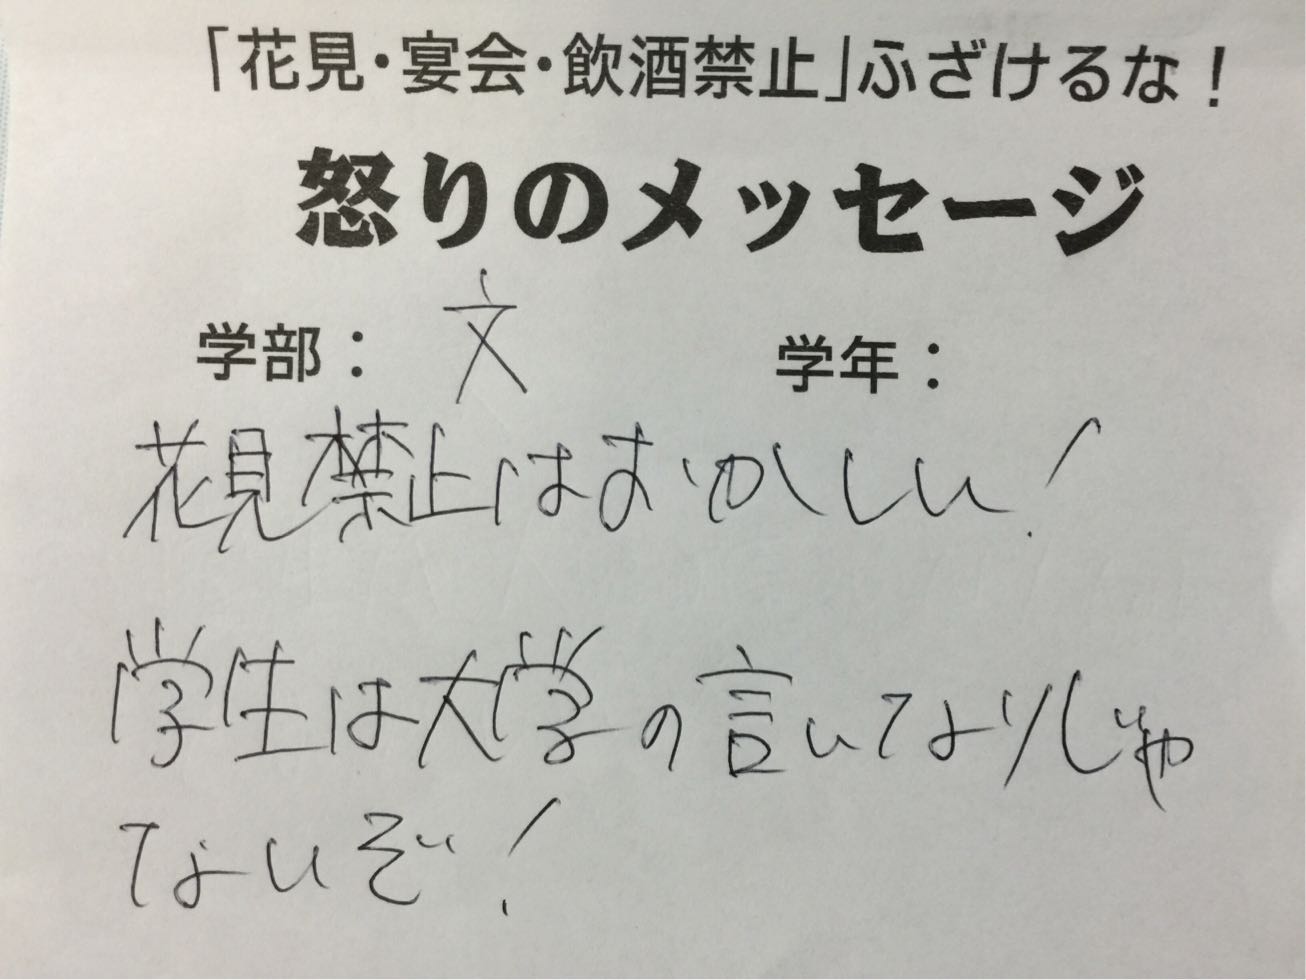 「花見・宴会・飲酒禁止」ふざけるな！
怒りのメッセージ
学部：文　学年：
花見禁止はおかしい！
学生は大学の言いなりじゃ
ないぞ！